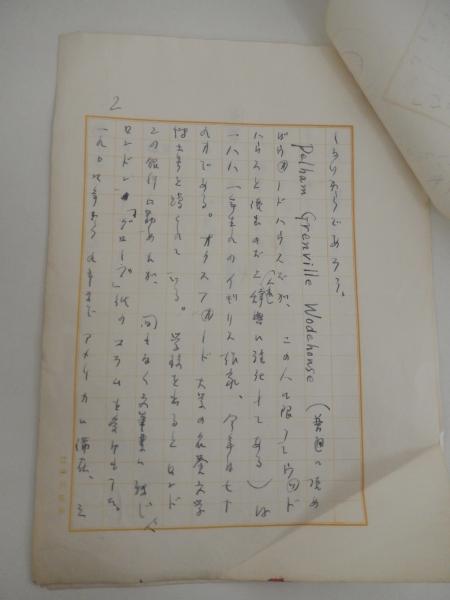 であろう。
Pelham Grenville Wodehouse (普通に読め
ばウオードハウスだが、この人に限ってウッド
ハウスと 人名 辞典に註記してある) は
一八八一年生れのイギリス作家。今年は七十
九才である。オクスフォード大学の名誉文学
博士号を いる。学校を出るとロンド
ンの銀行に勤めたが、間もなく文筆業に転じ、
ロンドン・「グローブ」紙のコラムを受けもった。
一九〇九年から 年まで アメリカに滞在、
2